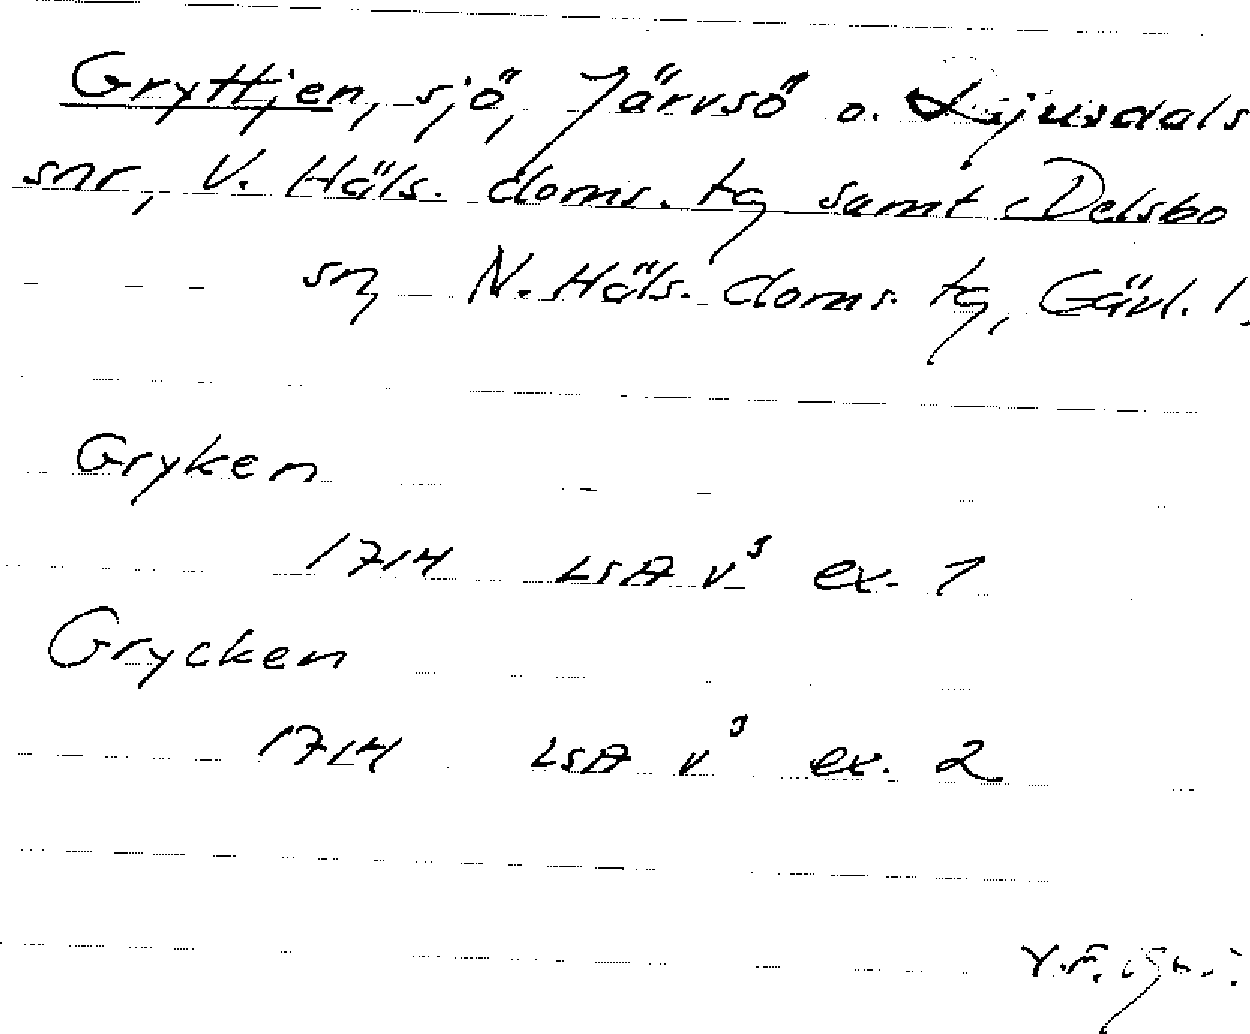 Gryttjen, sjö, Järvsö o. Ljusdals
snr, V. Häls. doms. tg samt Delsbo
sn, N. Häls. doms. tg, Gävl. l.
Gryken
1714 LSA v³ ex. 1
Grycken
1714 LSA v³ ex. 2